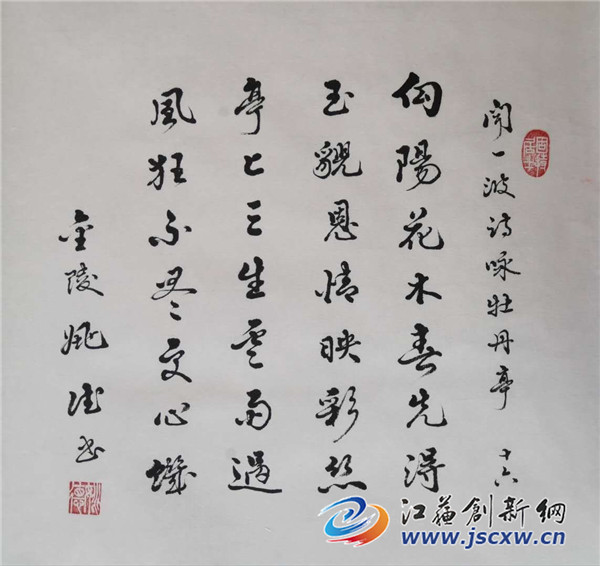 聞一波诗咏牡丹亭 十六
向陽花木春先得
玉貌恩情映彩絲
亭上三生雲雨過
風狂不 心
金陵姚 书
江蘇創新網
www.jscxw.cn